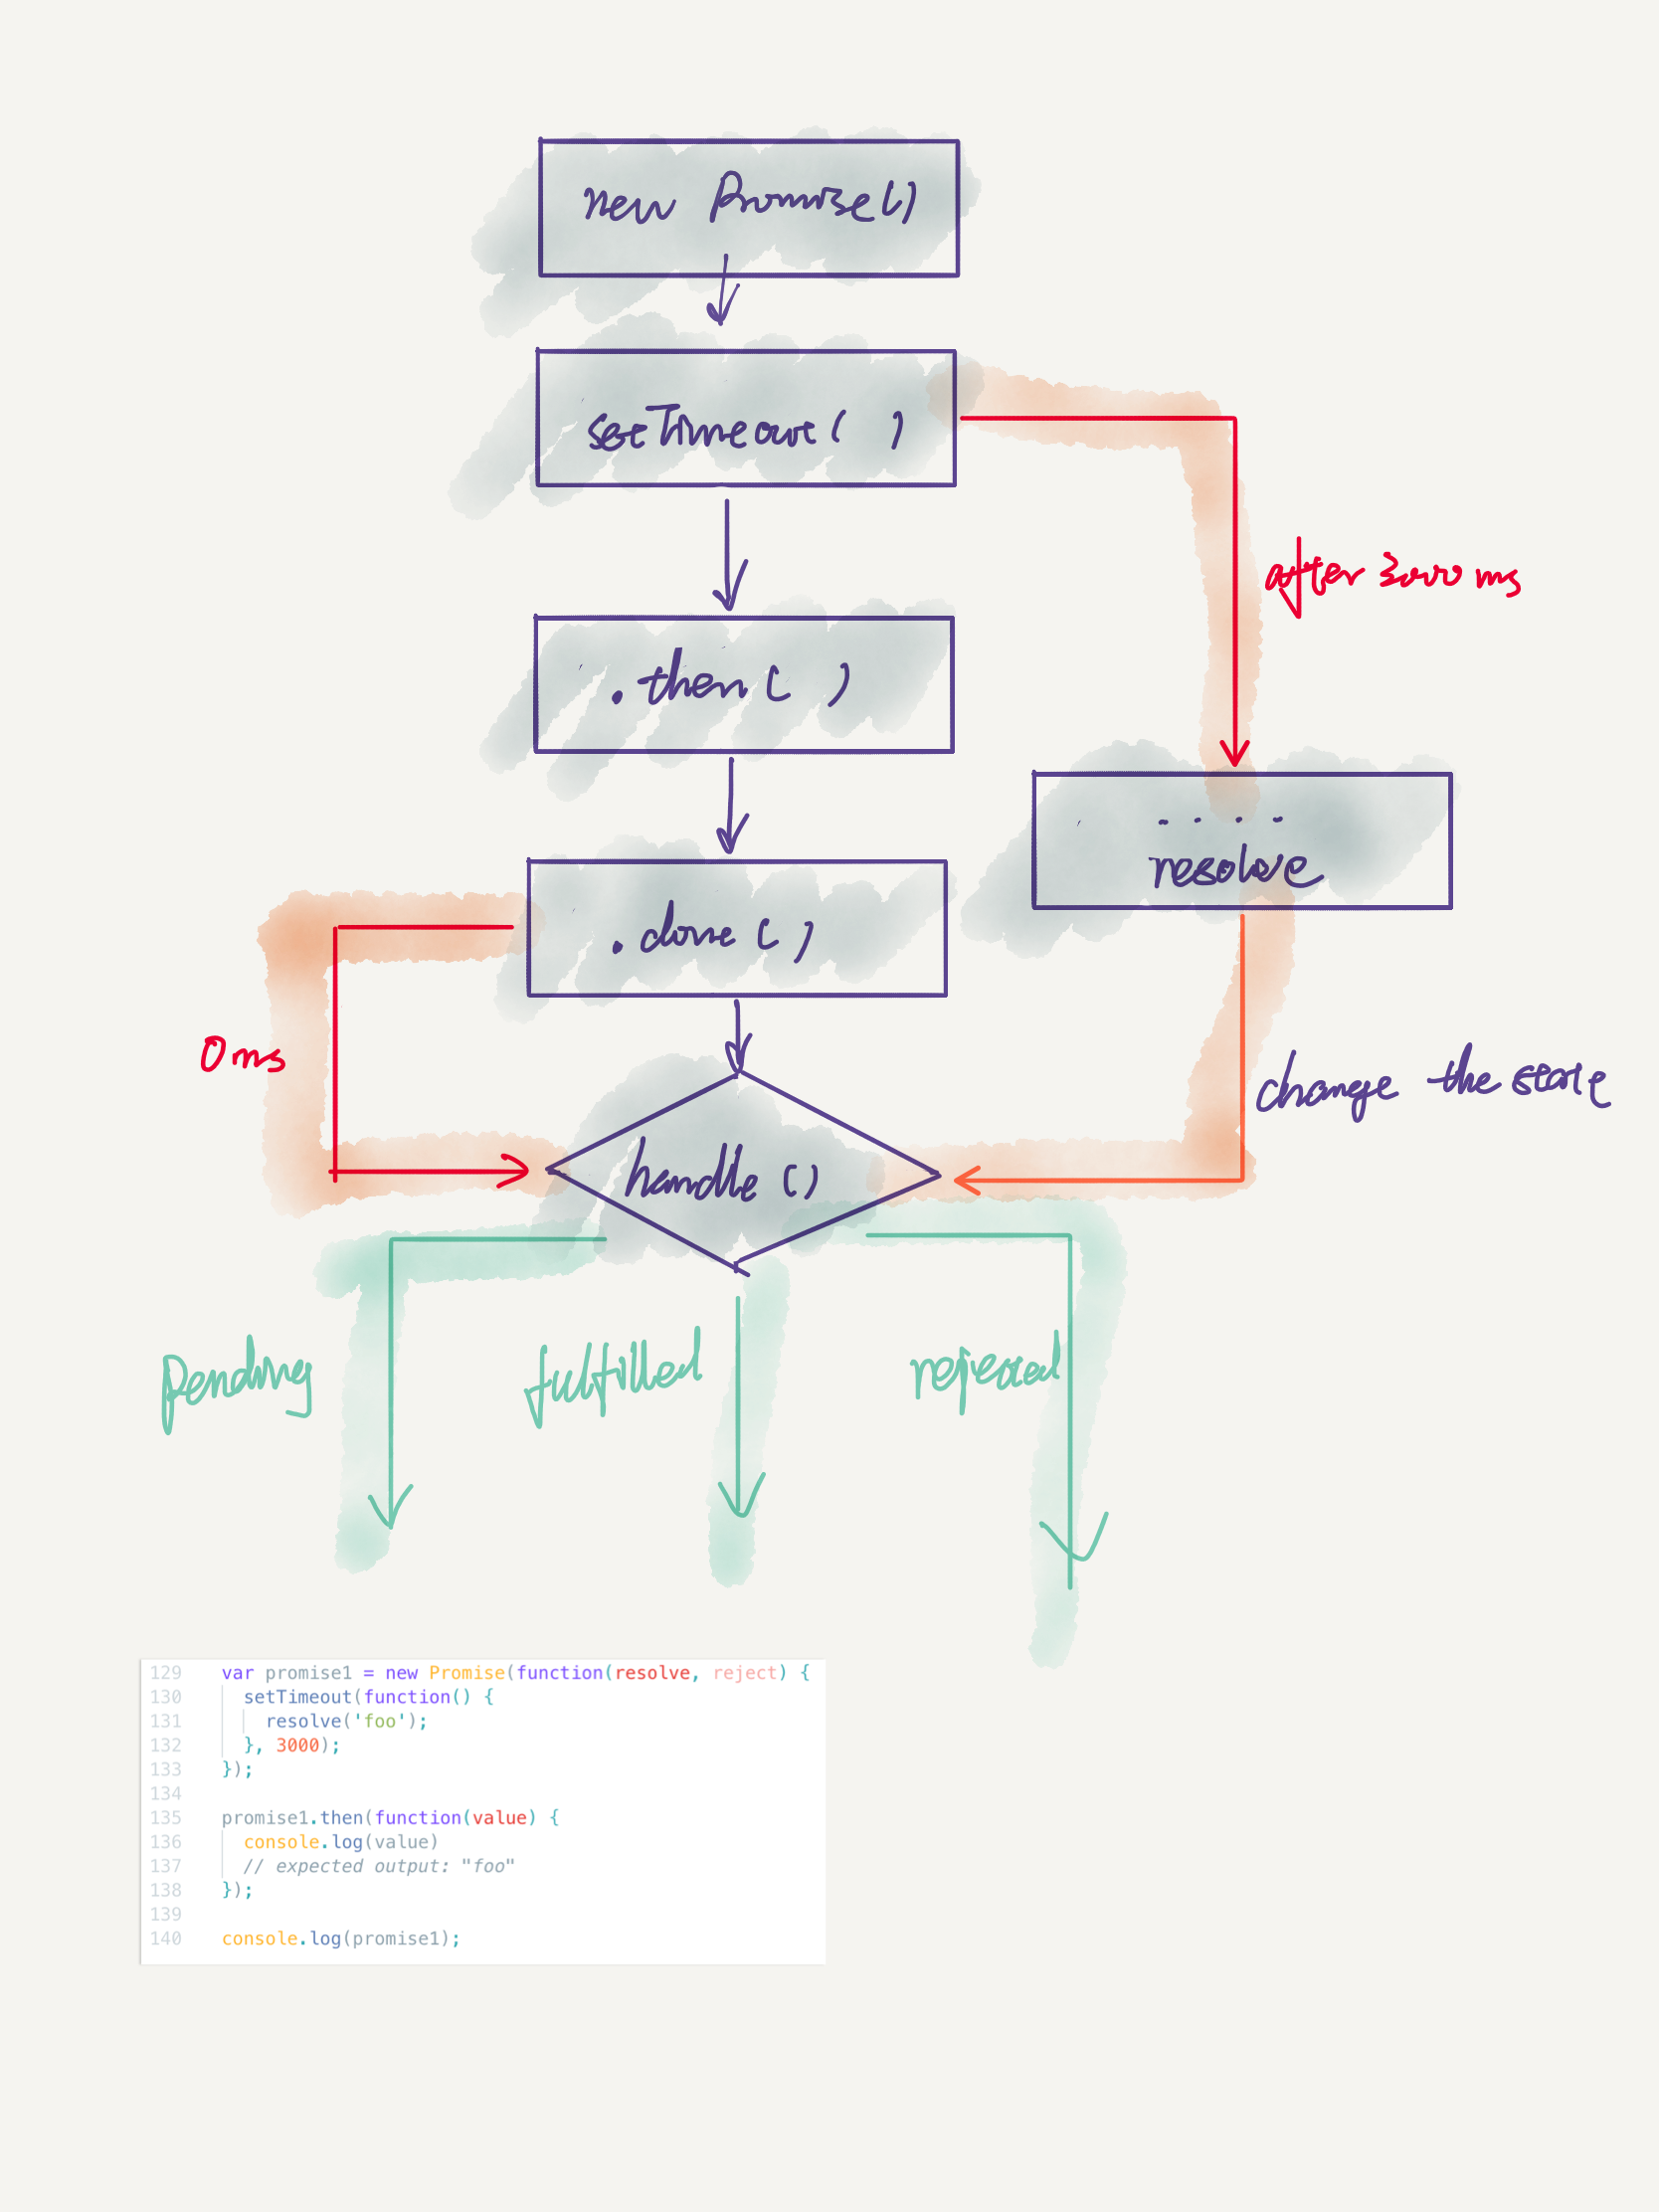 new Promise()
setTimeout( )
after 3000 ms
.then( )
....
resolve
.done()
0 ms
change the state
handle()
pending
fulfilled
rejected
129 var promise1 = new Promise(function(resolve, reject) {
130 setTimeout(function() {
131 resolve('foo');
132 }, 3000);
133 });
134
135 promise1.then(function(value) {
136 console.log(value)
137 // expected output: "foo"
138 });
139
140 console.log(promise1);